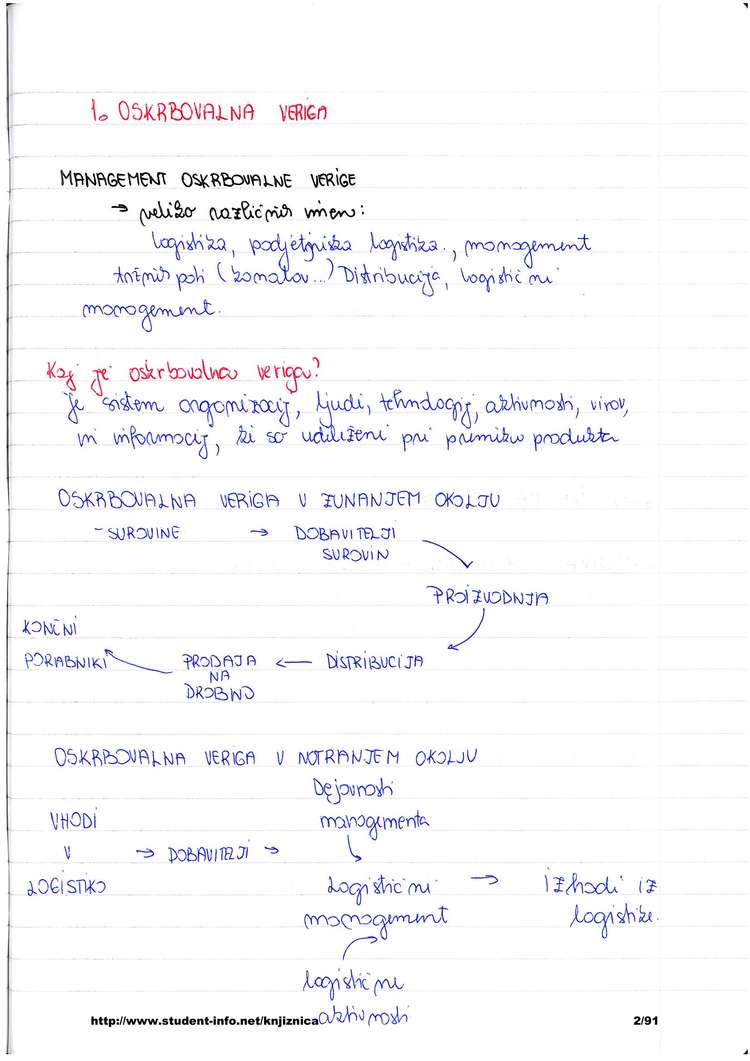 1. OSKRBOVALNA VERIGA
MANAGEMENT OSKRBOVALNE VERIGE
→ veliko različnih imen:
logistika, podjetniska logistika., management
tržnih poti (kanalov...) Distribucija, logistični
management.
Kaj je oskrbovalna veriga?
Je sistem organizacij, ljudi, tehnologij, aktivnosti, virov,
in informacij, ki so udeleženi pri premiku produkta
OSKRBOVALNA VERIGA V ZUNANJEM OKOLJU
- SUROVINE → DOBAVITELJI
SUROVIN
PROIZVODNJA
KONČNI
PORABNIKI PRODAJA ← DISTRIBUCIJA
NA
DROBNO
OSKRBOVALNA VERIGA V NOTRANJEM OKOLJU
Dejavnosti
VHODI managementa
V → DOBAVITELJI →
LOGISTIKO Logistični → izhodi iz
management logistike.
logistične
aktivnosti
http://www.student-info.net/knjiznica 2/91